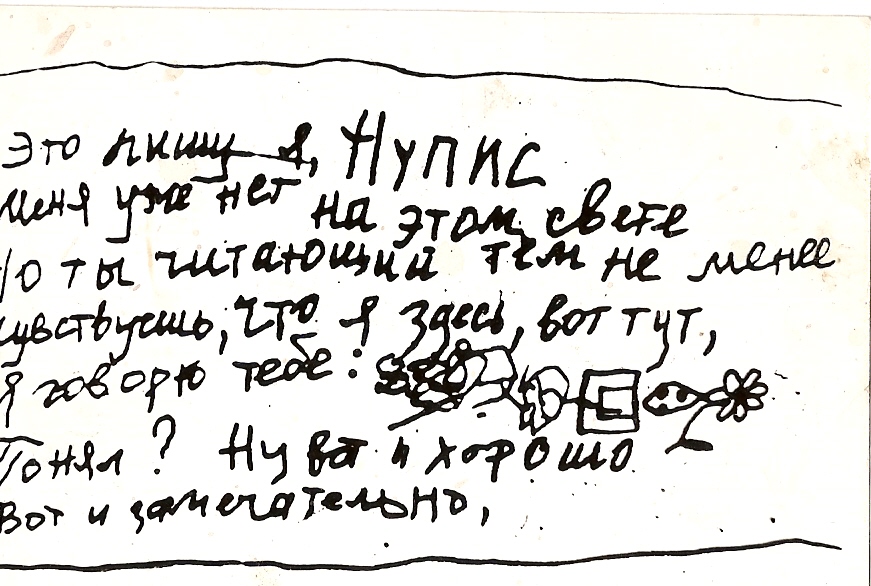 Это пишу я, Нупис
меня уже нет на этом свете
Но ты читающий тем не менее
чувствуешь, что я здесь, вот тут,
я говорю тебе:
Понял? Ну вот и хорошо
Вот и замечательно,